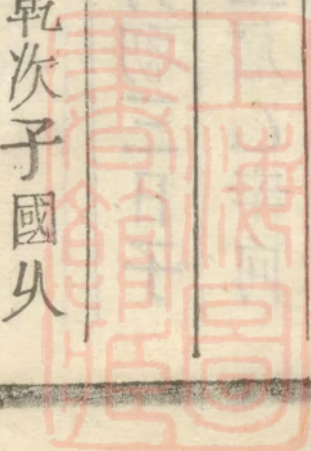 乾次子國以
上海圖
書館藏